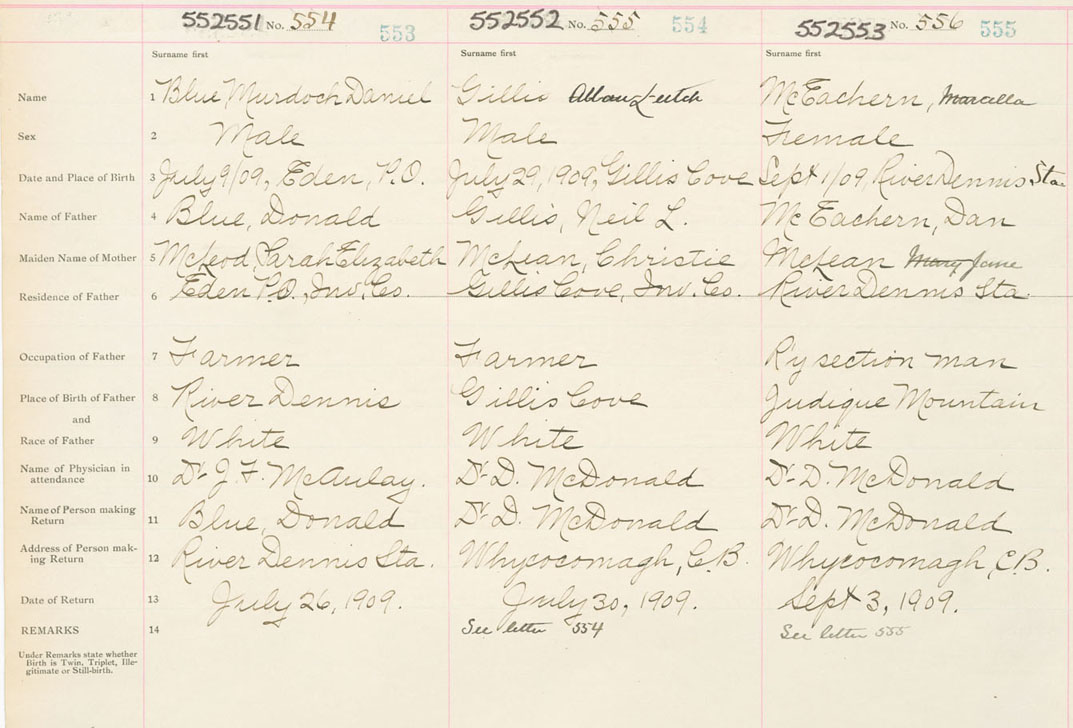 552551 No. 554 553 552552 No. 555 554 552553 No. 556 555
Surname first Surname first Surname first
Name 1 Blue Murdoch Daniel Gillis Allan Leitch McEachern, Marcella
Sex 2 Male Male Female
Date and Place of Birth 3 July 9/09, Eden, P.O. July 29, 1909, Gillis Cove Sept 1/09, River Dennis Sta
Name of Father 4 Blue, Donald Gillis, Neil L. McEachern, Dan
Maiden Name of Mother 5 McLeod, Sarah Elizabeth McLean, Christie McLean Mary Jane
Residence of Father 6 Eden P.O., Inv. Co. Gillis Cove, Inv. Co. River Dennis Sta.
Occupation of Father 7 Farmer Farmer Ry section man
Place of Birth of Father 8 River Dennis Gillis Cove Judique Mountain
and
Race of Father 9 White White White
Name of Physician in
attendance 10 Dr. J. F. McAulay. Dr. D. McDonald Dr. D. McDonald
Name of Person making
Return 11 Blue, Donald Dr. D. McDonald Dr. D. McDonald
Address of Person mak-
ing Return 12 River Dennis Sta. Whycocomagh, C.B. Whycocomagh, C.B.
Date of Return 13 July 26, 1909. July 30, 1909. Sept 3, 1909.
REMARKS 14 See letter 554 See letter 555
Under Remarks state whether
Birth is Twin, Triplet, Ille-
gitimate or Still-birth.